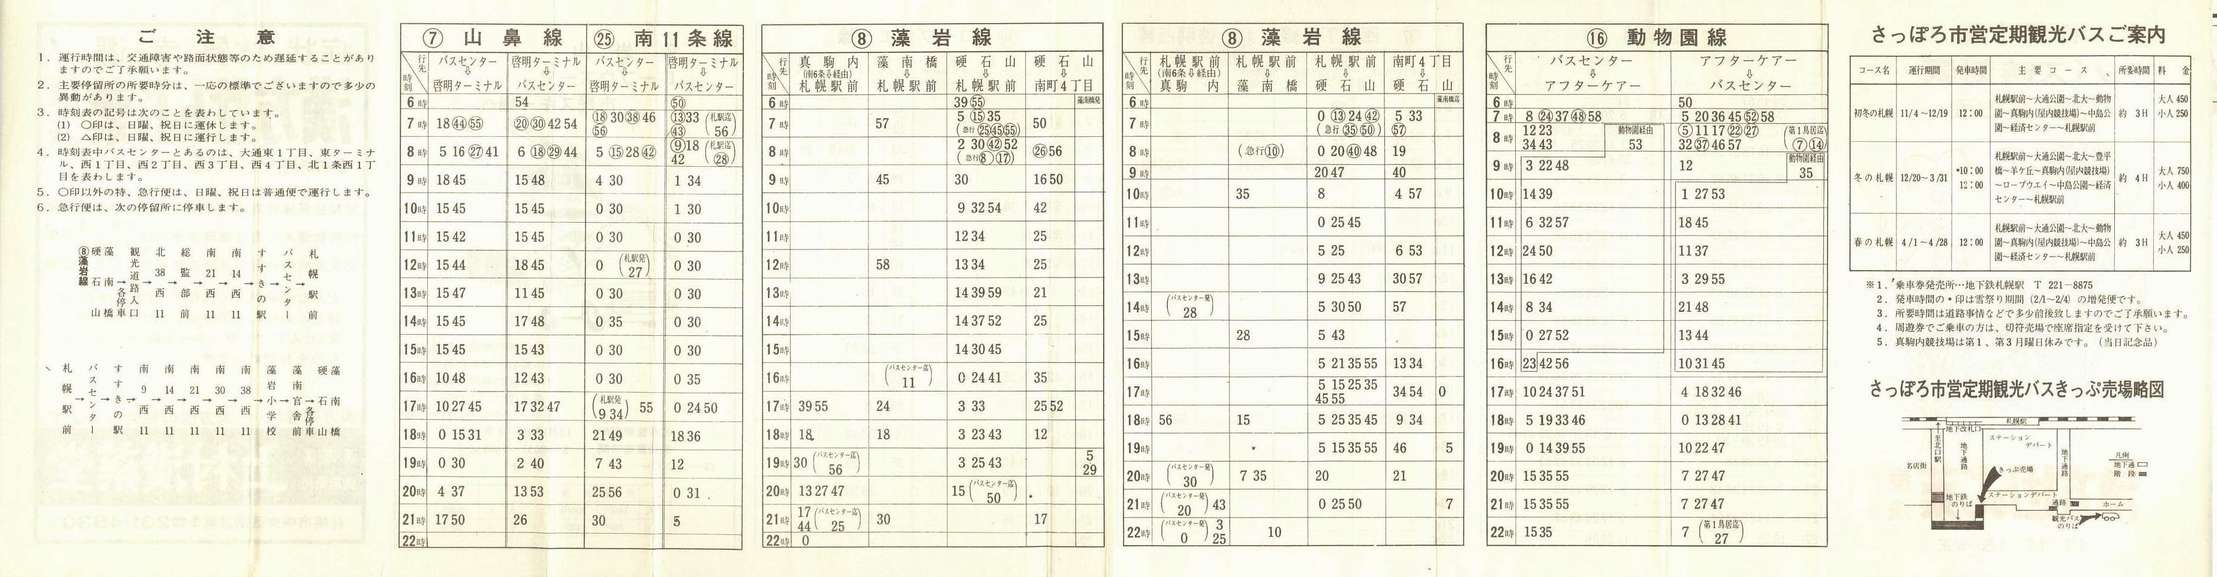 ご注意
1．運行時間は、交通障害や路面状態等のため遅延することがあり
ますのでご了承願います。
2．主要停留所の所要時分は、一応の標準でございますので多少の
異動があります。
3．時刻表の記号は次のことを表わしています。
(1) ○印は、日曜、祝日に運休します。
(2) △印は、日曜、祝日に運行します。
4．時刻表中バスセンターとあるのは、大通東1丁目、東ターミナ
ル、西1丁目、西2丁目、西3丁目、西4丁目、北1条西1丁
目を表わします。
5．○印以外の特、急行便は、日曜、祝日は普通便で運行します。
6．急行便は、次の停留所に停車します。
⑧藻岩線
硬石山
藻南橋→各停車
観光道路入口→
北38西11→
総監部前→
南21西11→
南14西11→
すすきの駅→
バスセンター→
札幌駅前
札幌駅前→
バスセンター→
すすきの駅→
南9西11→
南14西11→
南21西11→
南30西11→
南38西11→
藻岩小学校→
藻南官舎前→各停車
硬石山
藻南橋
⑦ 山鼻線 ㉕ 南11条線
行先 時刻 バスセンター⇩啓明ターミナル 啓明ターミナル⇩バスセンター バスセンター⇩啓明ターミナル 啓明ターミナル⇩バスセンター
6時 54 ㊿
7時 18 ㊹ 55 ⑳ ㉚ 42 54 ⑱ 30 ㊳ 46 56 ⑬ 33 ㊸ (札駅迄 56)
8時 5 16 ㉗ 41 6 ⑱ ㉙ 44 5 ⑮ 28 ㊷ ⑨ 18 42 (札駅迄 ㉘)
9時 18 45 15 48 4 30 1 34
10時 15 45 15 45 0 30 1 30
11時 15 42 15 45 0 30 0 30
12時 15 44 18 45 0 (札駅発 27) 0 30
13時 15 47 11 45 0 30 0 30
14時 15 45 17 48 0 35 0 30
15時 15 45 15 43 0 30 0 30
16時 10 48 12 43 0 30 0 35
17時 10 27 45 17 32 47 (札駅発 9 34) 55 0 24 50
18時 0 15 31 3 33 21 49 18 36
19時 0 30 2 40 7 43 12
20時 4 37 13 53 25 56 0 31
21時 17 50 26 30 5
22時
⑧ 藻岩線
行先 時刻 真駒内(南6条⇩経由)札幌駅前 藻南橋⇩札幌駅前 硬石山⇩札幌駅前 硬石山⇩南町4丁目
6時 39 55 藻南橋発
7時 57 5 ⑮ 35 (急行 ㉕ ㊺ 55) 50
8時 2 30 ㊷ 52 (急行 ⑧ ⑰) ㉖ 56
9時 45 30 16 50
10時 9 32 54 42
11時 12 34 25
12時 58 13 34 25
13時 14 39 59 21
14時 14 37 52 25
15時 14 30 45
16時 (バスセンター迄 11) 0 24 41 35
17時 39 55 24 3 33 25 52
18時 18 18 3 23 43 12
19時 30 (バスセンター迄 56) 3 25 43 5 29
20時 13 27 47 15 (バスセンター迄 50)
21時 17 44 (バスセンター迄 25) 30 17
22時 0
⑧ 藻岩線
行先 時刻 札幌駅前(南6条⇩経由)真駒内 札幌駅前⇩藻南橋 札幌駅前⇩硬石山 南町4丁目⇩硬石山
6時 藻南橋迄
7時 0 ⑬ 24 ㊷ (急行 ㉟ ㊿) 5 33 57
8時 (急行 ⑩) 0 20 ㊵ 48 19
9時 20 47 40
10時 35 8 4 57
11時 0 25 45
12時 5 25 6 53
13時 9 25 43 30 57
14時 (バスセンター発 28) 5 30 50 57
15時 28 5 43
16時 5 21 35 55 13 34
17時 5 15 25 35 45 55 34 54 0
18時 56 15 5 25 35 45 9 34
19時 5 15 35 55 46 5
20時 (バスセンター発 30) 7 35 20 21
21時 (バスセンター発 20) 43 0 25 50 7
22時 (バスセンター発 0) 3 25 10
⑯ 動物園線
行先 時刻 バスセンター⇩アフターケアー アフターケアー⇩バスセンター
6時 50
7時 8 ㉔ ㊲ ㊽ 58 5 20 36 45 52 58
8時 12 23 34 43 動物園経由 53 ⑤ 11 17 ㉒ ㉗ 32 ㊲ 46 57 (第1鳥居迄 ⑦ ⑭)
9時 3 22 48 12 動物園経由 35
10時 14 39 1 27 53
11時 6 32 57 18 45
12時 24 50 11 37
13時 16 42 3 29 55
14時 8 34 21 48
15時 0 27 52 13 44
16時 23 42 56 10 31 45
17時 10 24 37 51 4 18 32 46
18時 5 19 33 46 0 13 28 41
19時 0 14 39 55 10 22 47
20時 15 35 55 7 27 47
21時 15 35 55 7 27 47
22時 15 35 7 (第1鳥居迄 27)
さっぽろ市営定期観光バスご案内
コース名 運行期間 発車時間 主要コース 所要時間 料金
初冬の札幌 11/4～12/19 12：00 札幌駅前～大通公園～北大～動物園～真駒内(屋内競技場)～中島公園～経済センター～札幌駅前 約3H 大人450 小人250
冬の札幌 12/20～3/31 *10：00 12：00 札幌駅前～大通公園～北大～豊平橋～羊ケ丘～真駒内(屋内競技場)～ロープウエイ～中島公園～経済センター～札幌駅前 約4H 大人750 小人400
春の札幌 4/1～4/28 12：00 札幌駅前～大通公園～北大～動物園～真駒内(屋内競技場)～中島公園～経済センター～札幌駅前 約3H 大人450 小人250
※1．乗車券発売所…地下鉄札幌駅 T 221－8875
2．発車時間の*印は雪祭り期間(2/1～2/4)の増発便です。
3．所要時間は道路事情などで多少前後致しますのでご了承願います。
4．周遊券でご乗車の方は、切符売場で座席指定を受けて下さい。
5．真駒内競技場は第1、第3月曜日休みです。(当日記念品)
さっぽろ市営定期観光バスきっぷ売場略図
札幌駅
地下改札口
至北口駅
地下通路
ステーションデパート
地下通路
名店街
きっぷ売場
凡例
地下通
階段
地下鉄のりば
ステーションデパート
通路
ホーム
観光バスのりば